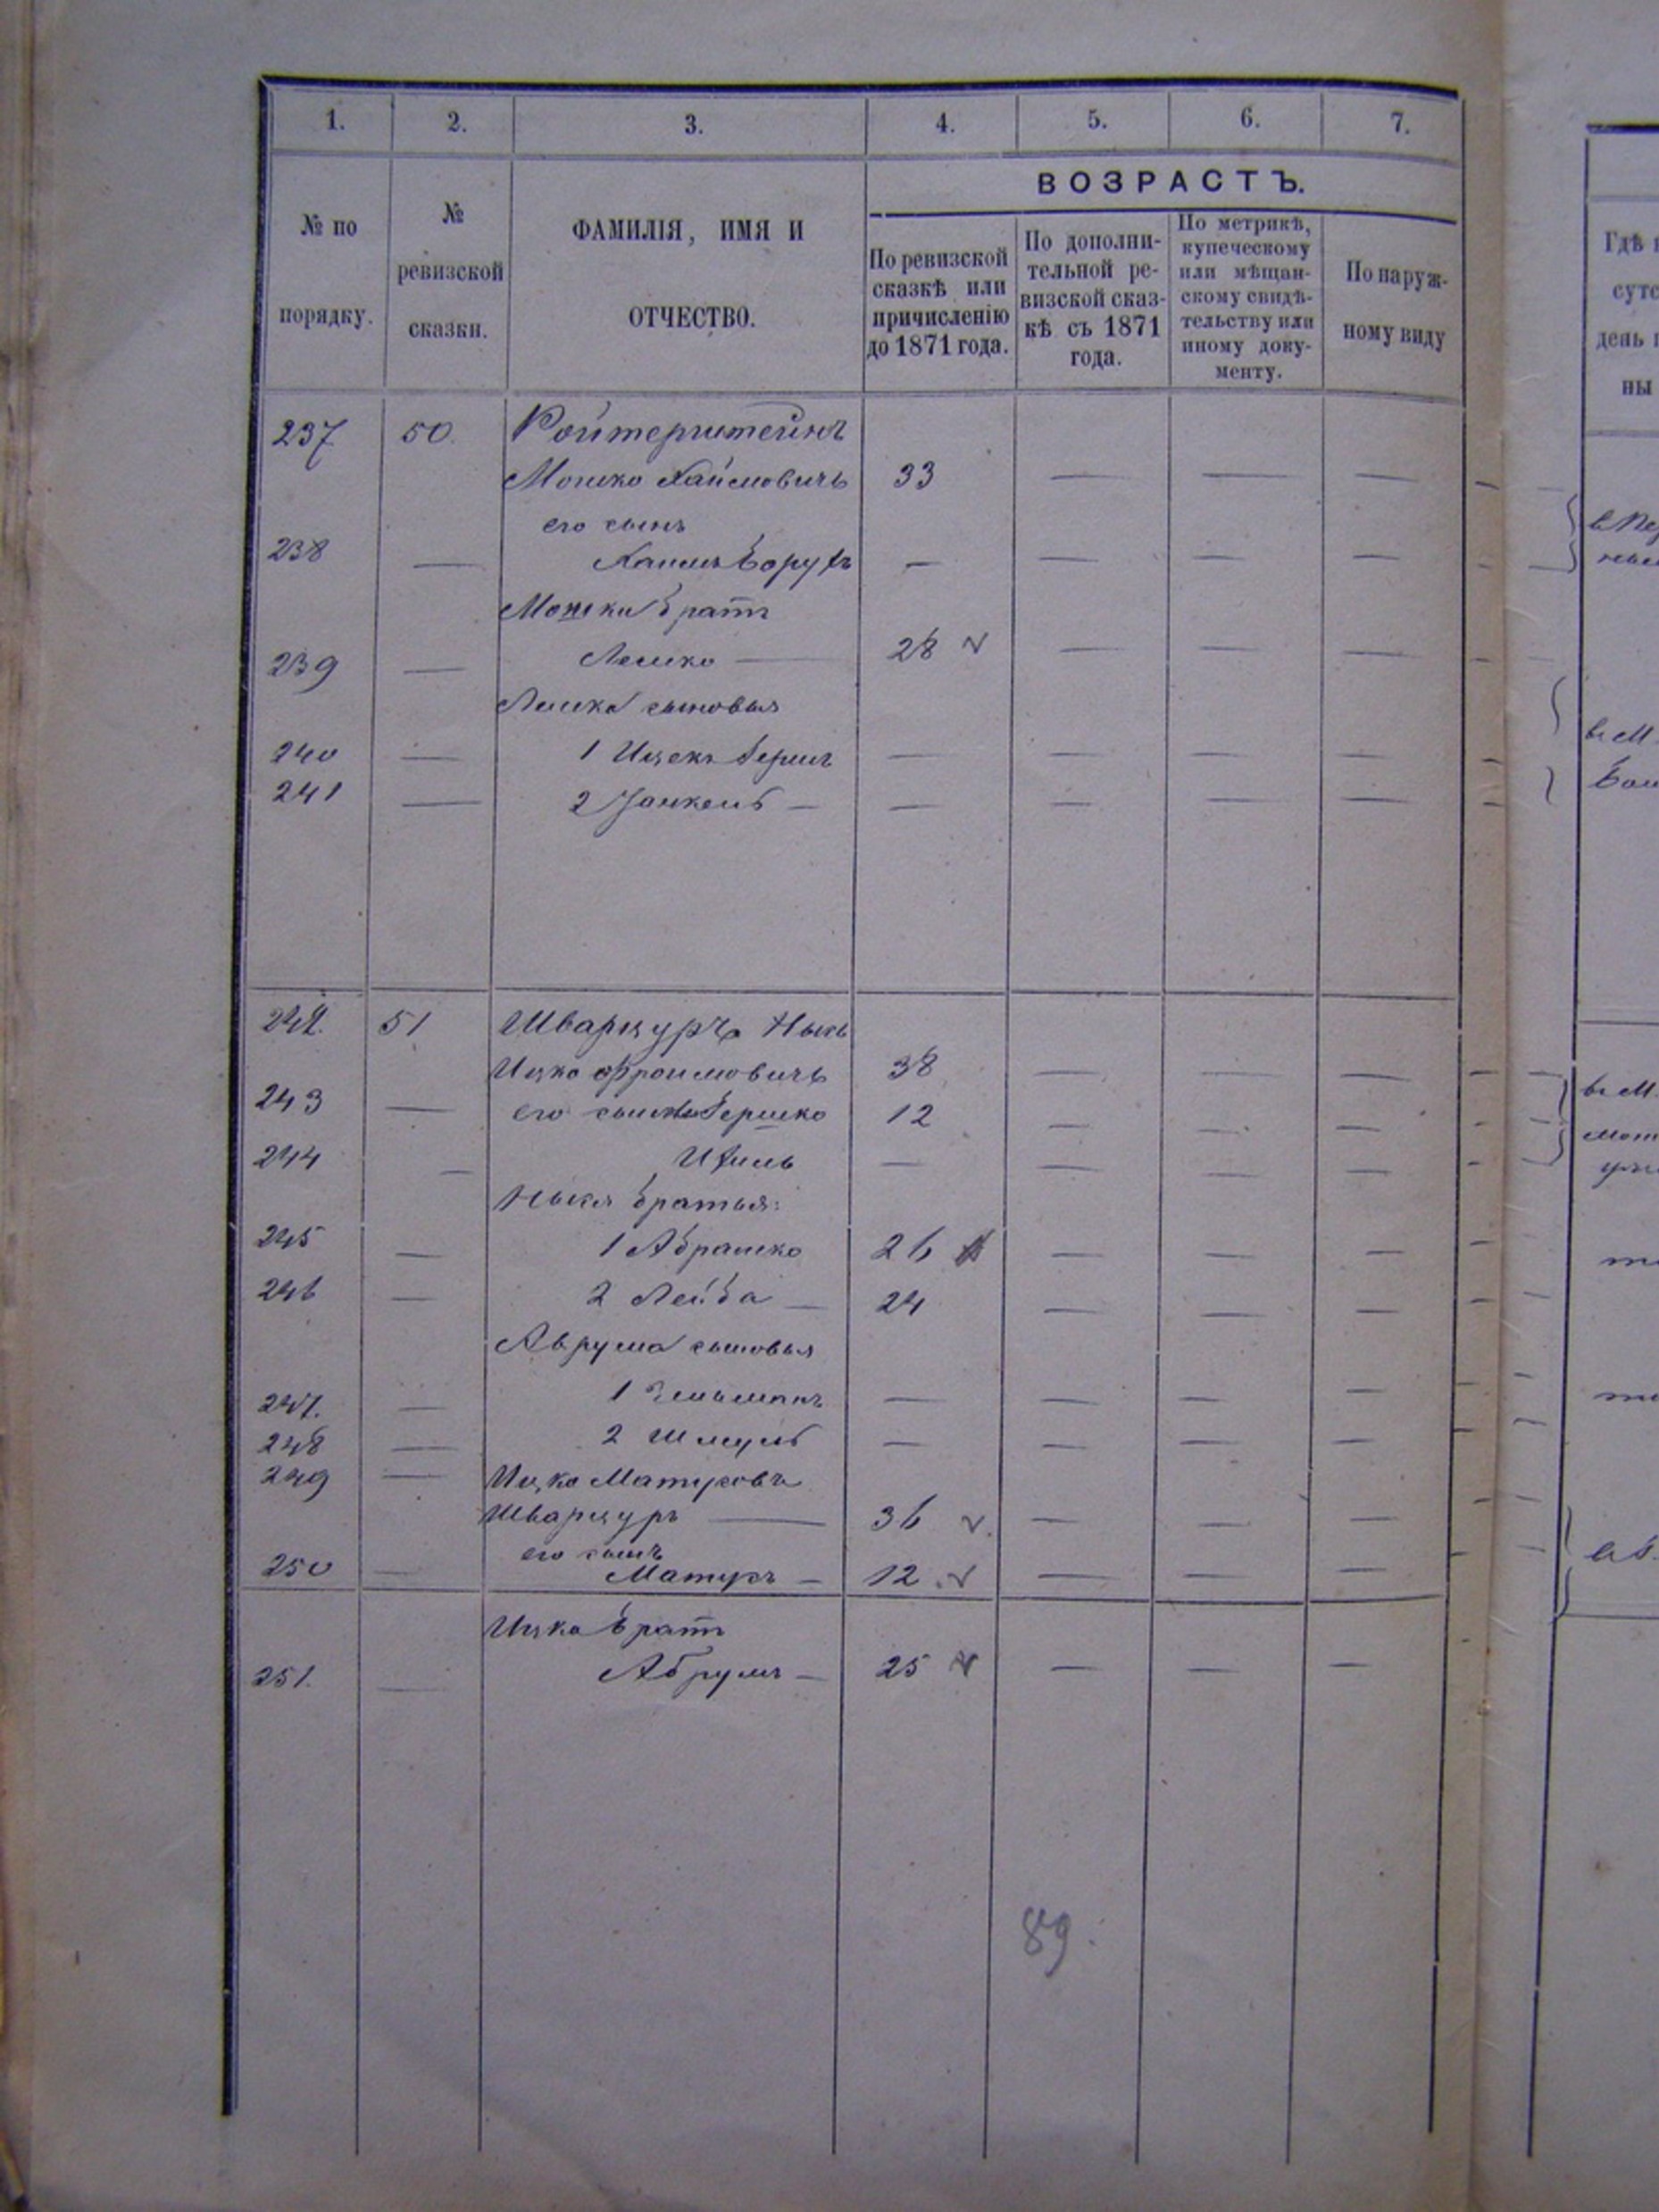 1. 2. 3. 4. 5. 6. 7.
№ по порядку.
№ ревизской сказки.
ФАМИЛІЯ, ИМЯ И ОТЧЕСТВО.
ВОЗРАСТЪ.
По ревизской сказкѣ или причисленію до 1871 года.
По дополни-тельной ре-визской сказ-кѣ съ 1871 года.
По метрикѣ, купеческому или мѣщан-скому свидѣ-тельству или иному доку-менту.
По наруж-ному виду
Гдѣ
день
ны
237 50. Ройтерштейнъ
Мошко Хаймовичъ 33 — — —
его сынъ
238 — Хаимъ Борухъ — — — —
Мошки братъ
239 — Лешко — 28 — — —
Лешка сыновья
240 — 1 Ицекъ Гершъ — — — —
241 — 2 Янкель — — — — —
242. 51 Шварцуръ
Ицко Фроимовичъ 38 — — —
243 — его сынъ Гершко 12 — — —
244 — Ихиль — — — —
братья:
245 — 1 Абрашко 26 — — —
246 — 2 Лейба — 24 — — —
Аврума сыновья
247. — 1 Зельманъ — — — —
248 — 2 Шмуль — — — —
249 — Ицко
Шварцуръ — 36 — — —
его сынъ
250 — — 12 — — —
Ицка братъ
251. — Абрумъ — 25 — — —
89.